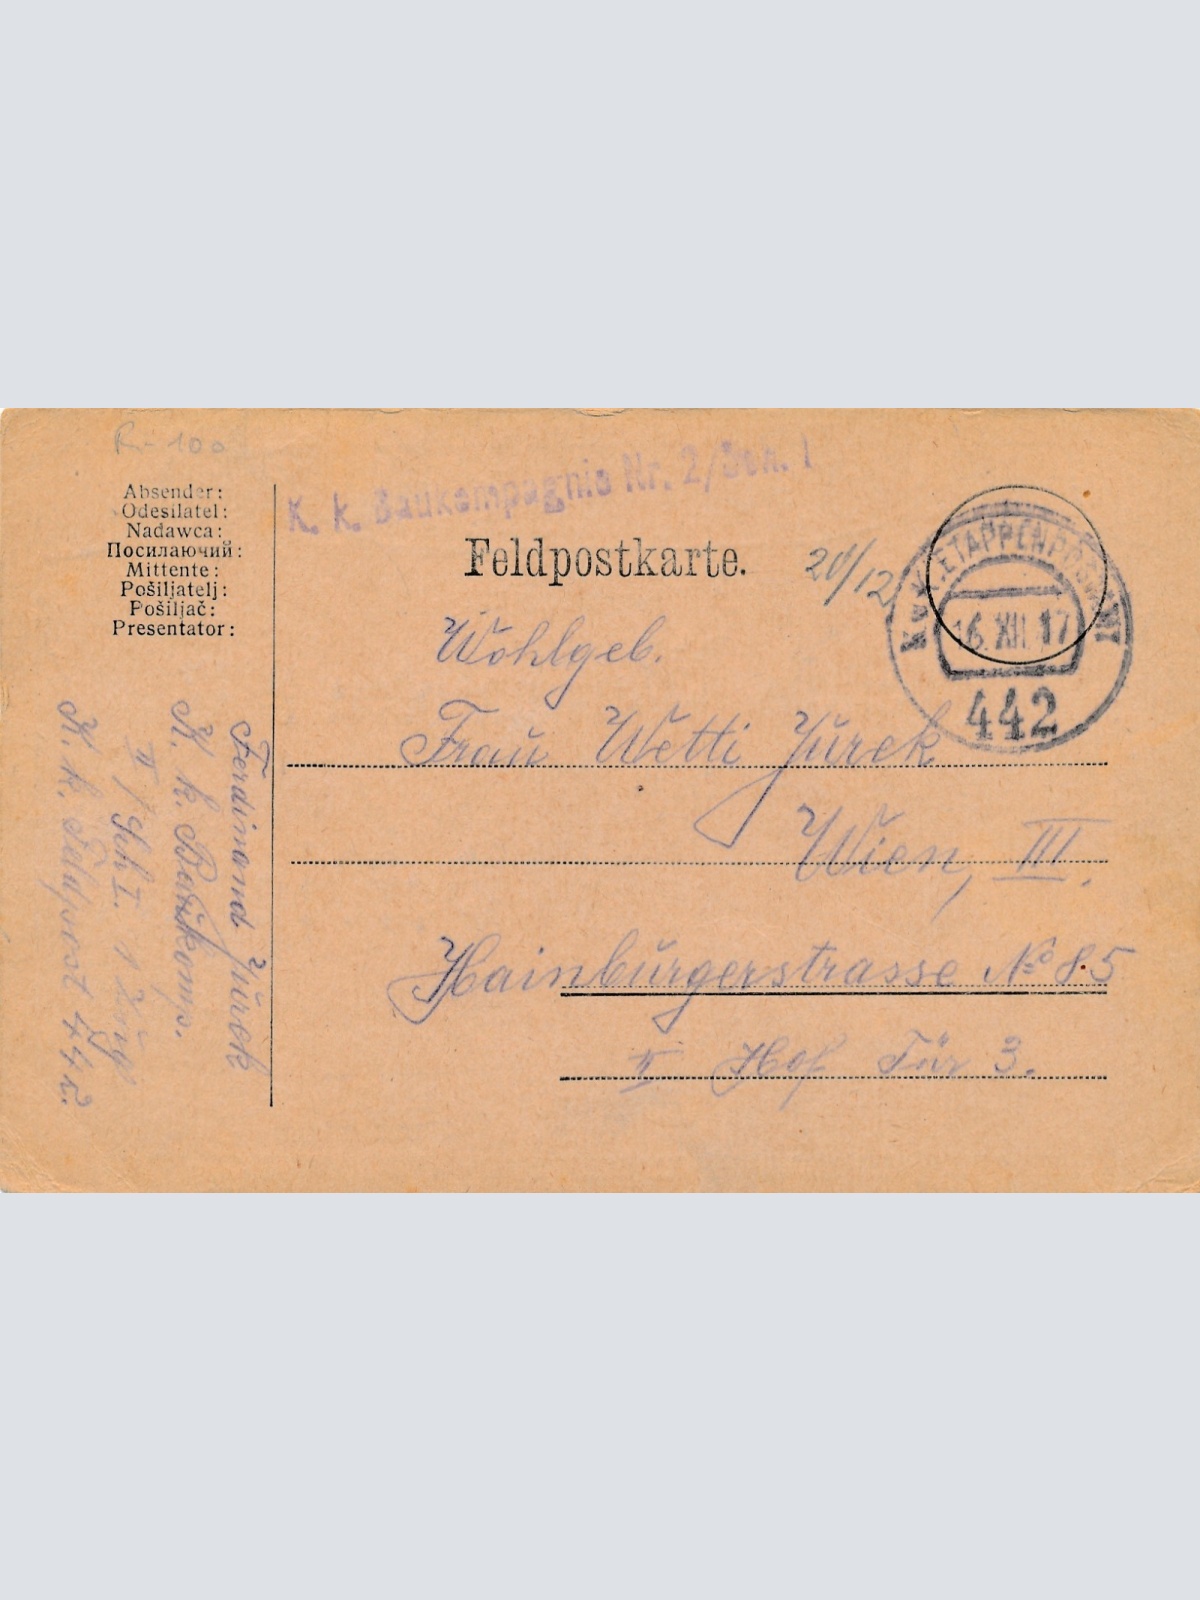 R- 100
K. k. Baukompagnie Nr. 2/Sch. I
Absender:
Odesílatel:
Nadawca:
Посилаючий:
Mittente:
Pošiljatelj:
Pošiljač:
Presentator:
Feldpostkarte.
20/12
K.u.K. ETAPPENPOSTAMT
16. XII. 17
442
Wohlgeb.
Frau Wetti Jurek
Wien, III.
Hainburgerstrasse No 85
II Hof Tür 3.
Ferdinand Jurek
K. k. Baukomp.
II/Sch I. 1 Zug
K. k. Feldpost 442.